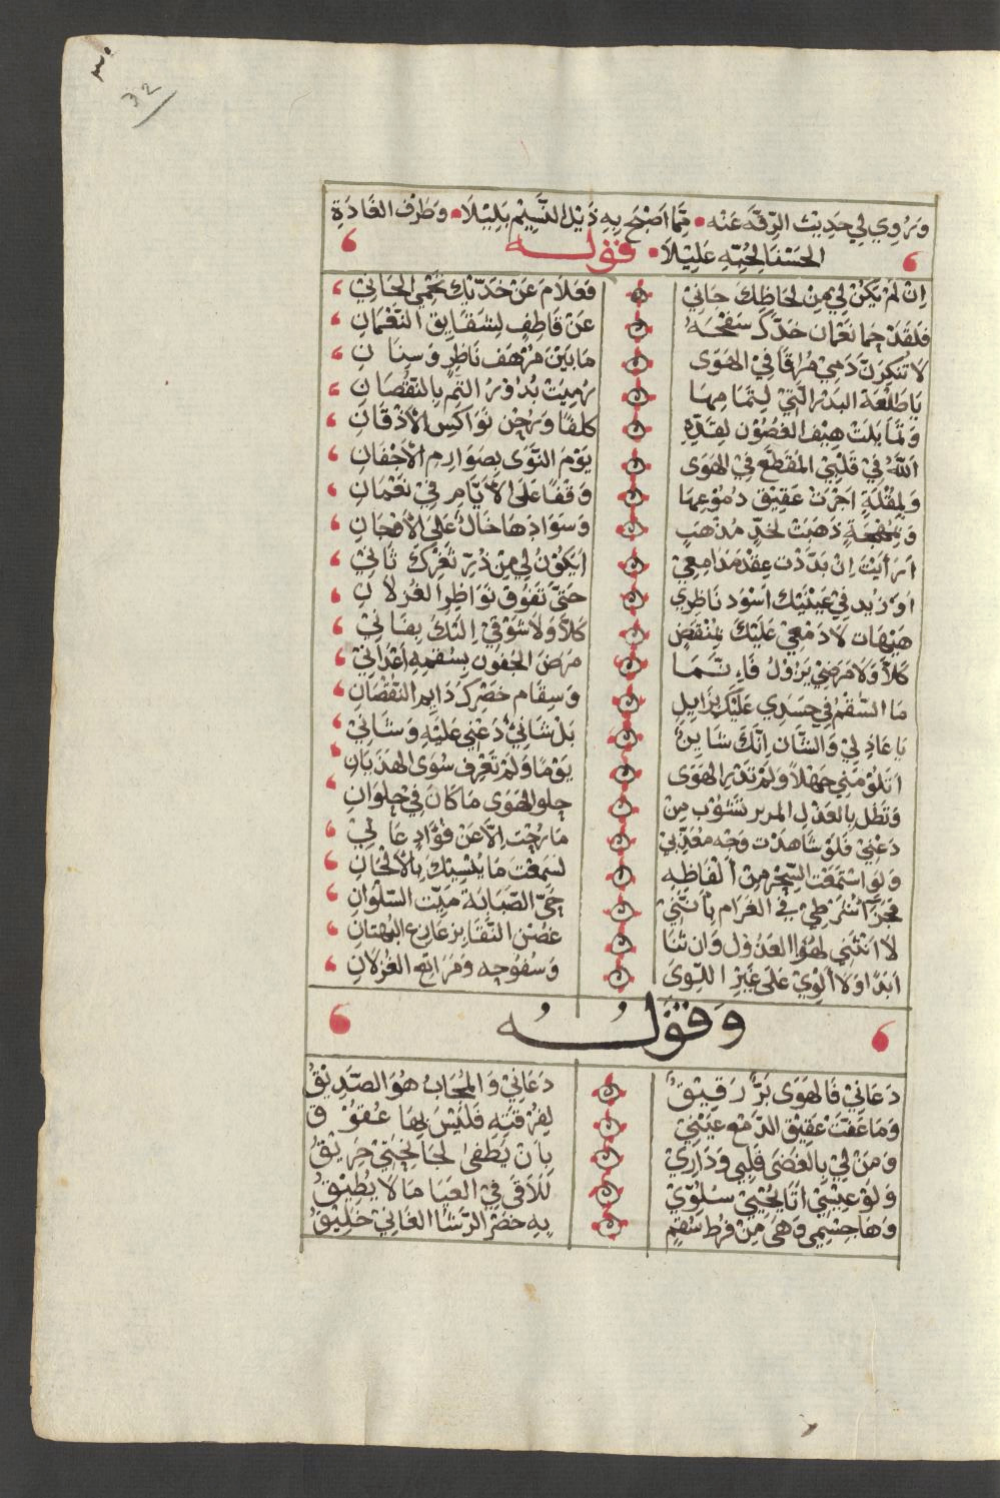 32
وَرُوِي لِي حَدِيْث الرِّقَّه عَنه • مِمَّا اَصْبَح بِهِ ذَيْل النَّسِيْم بَلِيْلَا • وَطَرْف الغَادَةِ
الحَسْنَا لِحُبِّهِ عَلِيْلَا • قوله
اِنْ لَمْ يَكُنْ لِي مِنْ لِحَاظِكَ جَانِيْ فَعَلَامَ عَنْ خَدَّيْك يُحْمَى الجَانِيْ
فَلَقَدْ حِما نَعْمَان خَدّكَ سَفْحَهُ عَنْ قَاطِفٍ لِشَقَايِق النّعْمَانِ
لَا تُنْكِرَنّ دَمِيْ مُرَاقًا فِي الهَوَى مَا بَيْنَ مُرْهَف نَاظِرٍ وَسِنَانِ
يَا طَلْعَة البَدْر الَّتِيْ لِتَمَامِهَا رُمِيَتْ بُدُوْرُ التّمِّ بِالنّقْصَانِ
وَتَمَايَلَتْ هِيْف الغُصُوْن لِقَدِّهِ كلفًا وَرُحْن نَوَاكِس الأَذْقَانِ
اللَّهُ فِيْ قَلْبِيْ المُقَطَّعِ فِيْ الهَوَى يَوْمَ النَّوَى بِصَوَارِم الأَجْفَانِ
وَلِمُقْلَةٍ اَجْرَتْ عَقِيْق دُمُوْعِهَا وَقْفًا عَلَى الأَيَّام فِيْ نَعْمَانِ
ذَهَبَتْ لخَدٍّ مُذْهَبٍ وَسَوَادُهَا خَالٌ عَلَى
اَرَأَيْتَ اِنْ بَدَّدْت عِقْدَ مَدَامِعِيْ اَيَكُوْنُ لِي مِنْ دُرِّ ثَغْرِكَ ثَانِيْ
اَوْ زِيْد فِيْ عَيْنَيْك اَسْوَد نَاظِرِي حَتَّى تَفُوْق نَوَاظِر الغُزْلَانِ
هَيْهَات لَا دَمْعِيْ عَلَيْكَ بِمُنْقَضٍ كَلَّا وَلَا شَوْقِيْ اِلَيْكَ بِفَانِيْ
كَلَّا وَلَا مَرَضِيْ يَزُوْلُ فَاِنَّمَا مَرَض الجُفُون بِسُقْمِهِ اَعْدَانِيْ
مَا السُّقْمُ فِي جَسَدِي عَلَيْكَ بِزَايِلٍ وَسِقَام خَصْرِكَ دَايِم النّقْصَانِ
يَا عَاذِلِيْ وَالشَّان اِنَّكَ شَايِنٌ بَلْ شَانِيْ دَعْنِي عَلَيْهِ وَشَانِيْ
اَتَلُوْمُنِي جَهْلًا وَلَمْ تَدْرِ الهَوَى يَوْمًا وَلَمْ تَعْرِف سِوَى الهَذَيَانِ
وَتَظَلّ بِالعَذْل المرير تَشُوْب مِنْ حِلْو الهَوَى مَا كَانَ فِيْ حِلْوَانِ
دَعْنِيْ فَلَوْ شَاهَدْت وَجْه مُعَذِّبِيْ مَا رُحْتَ اِلَّا عَنْ فُؤَادٍ عَانِيْ
وَلَو اسْتَمَعْت السِّحْر مِنْ اَلْفَاظِهِ لَسَمِعْتَ مَا يُنْسِيْكَ بِالأَلْحَانِ
شَرْطِيْ فِي الغَرَام بِأَنَّنِيْ حَيّ الصَّبَابَة مَيِّت السّلْوَانِ
لَا اَنْثَنِي لهَوَا العَذُوْل وَاِنْ ثَنَا غصْن النَّقَا
اَبَدًا وَلَا اَلْوِيْ عَلَى غَيْر اللِّوَى وَسُفُوحِه وَمَرَاتِع الغُزْلَانِ
وَقَوْلُهُ
دَعَانِيْ فَالهَوَى بَرٌّ رَفِيْقٌ دَعَانِيْ وَالمُجَابُ هُوَ الصَّدِيْقُ
وَمَا عَقَّتْ عَقِيْق الدّمْع عَيْنِيْ لِفُرْقَتِهِ فَلَيْسَ بِهَا عُقُوْقُ
وَمَنْ لِيْ بِالغَضَى قَلْبِي وَدَارِيْ بِاَنْ يُطْفَى لجَانِحَتِيْ حَرِيْقُ
وَلَوْ عِيْسِيْ اُتَاحُ سُلُوِّيْ لَلَاقَى فِيْ العَيَا مَا لَا يُطِيْقُ
وَهَا جِسْمِي وَهَى مِنْ فَرْط سُقْمٍ بِهِ خَصْر الرَّشَا الغَانِيْ خَلِيْقُ